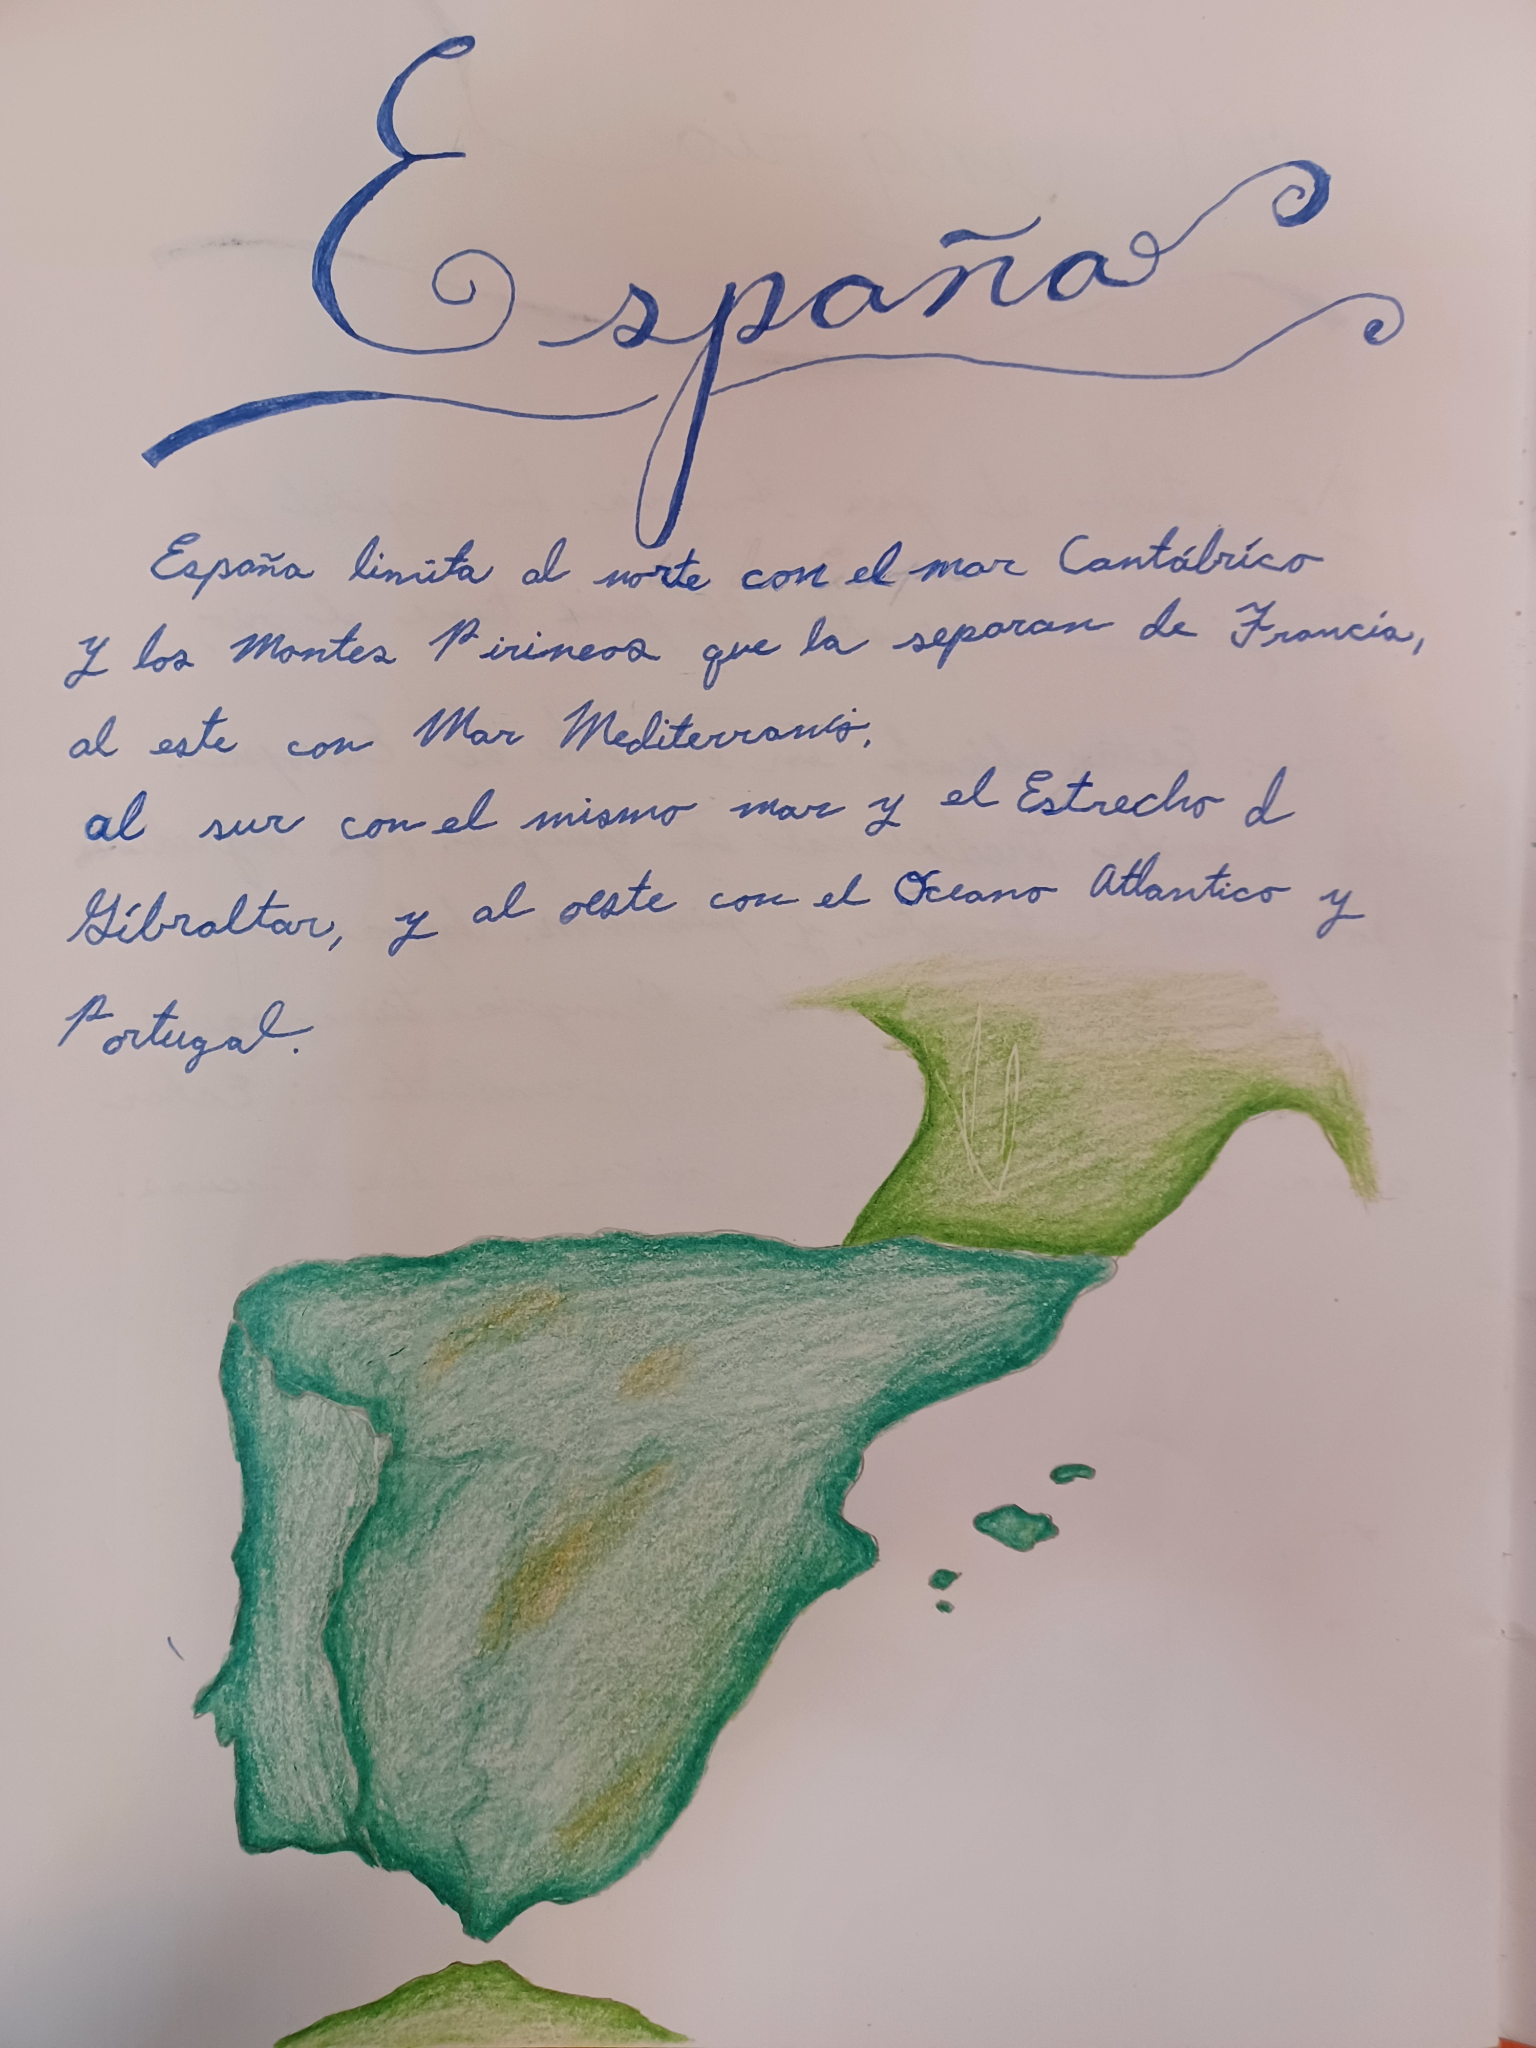 España
España limita al norte con el mar Cantábrico
y los Montes Pirineos que la separan de Francia,
al este con Mar Mediterranio,
al sur con el mismo mar y el Estrecho d
Gibraltar, y al oeste con el Oceano Atlantico y
Portugal.